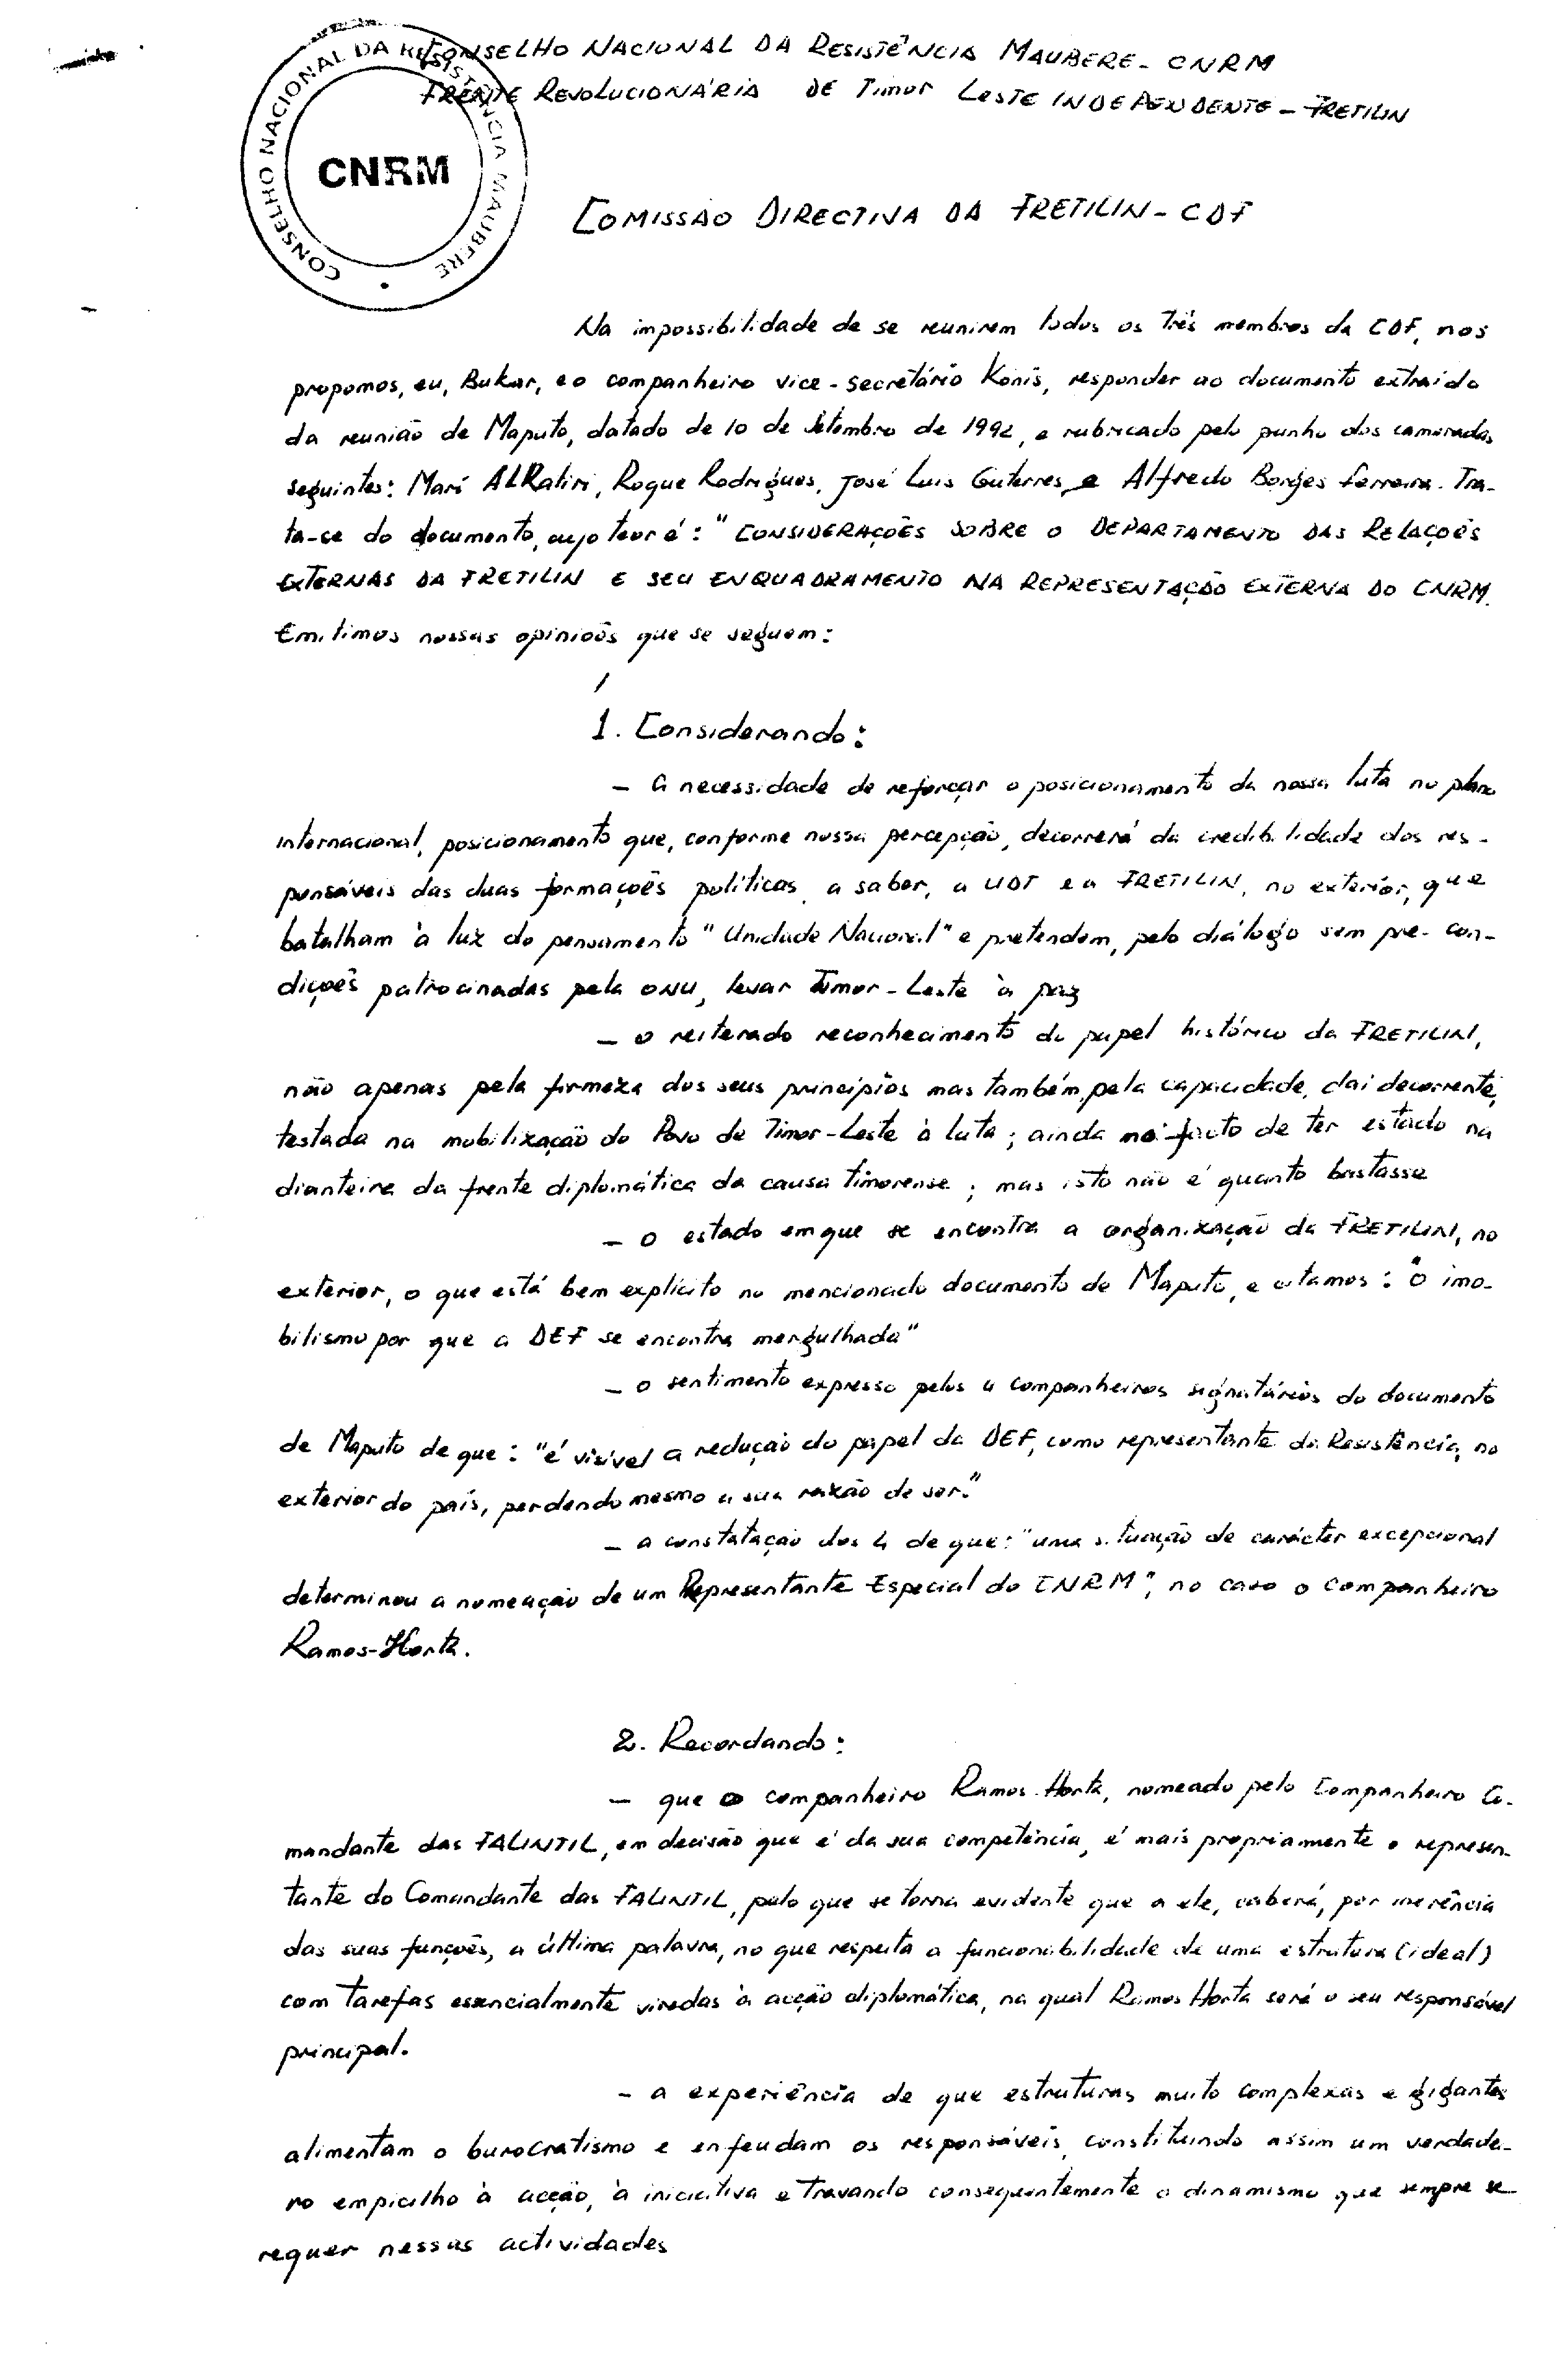 CONSELHO NACIONAL DA RESISTÊNCIA MAUBERE - CNRM
FRENTE REVOLUCIONÁRIA DE Timor LESTE INDEPENDENTE - FRETILIN
CONSELHO NACIONAL DA RESISTENCIA MAUBERE
CNRM
COMISSÃO DIRECTIVA DA FRETILIN - CDF
Na impossibilidade de se reunirem todos os três membros da CDF, nos
propomos, eu, Bukar, e o companheiro vice-secretário Konis, responder ao documento extraido
da reunião de Maputo, datado de 10 de Setembro de 1992, e rubricado pelo punho dos camaradas
seguintes: Marí ALKatiri, Roque Rodrigues, José Luis Guterres e Alfredo Borges Ferreira. Tra-
ta-se do documento, cujo teor é: "CONSIDERAÇÕES SOBRE O DEPARTAMENTO DAS RELAÇÕES
EXTERNAS DA FRETILIN E SEU ENQUADRAMENTO NA REPRESENTAÇÃO EXTERNA DO CNRM.
Emitimos nossas opiniões que se seguem:
1. Considerando:
- a necessidade de reforçar o posicionamento da nossa luta no plano
internacional, posicionamento que, conforme nossa percepção, decorrerá da credibilidade dos res-
ponsáveis das duas formações políticas, a saber, a UDT e a FRETILIN, no exterior, que
batalham à luz do pensamento "Unidade Nacional" e pretendem, pelo diálogo sem pre-con-
dições patrocinadas pela ONU, levar Timor-Leste à paz
- o reiterado reconhecimento do papel histórico da FRETILIN,
não apenas pela firmeza dos seus princípios mas também, pela capacidade, daí decorrente,
testada na mobilização do Povo de Timor-Leste à luta; ainda no facto de ter estado na
dianteira da frente diplomática da causa timorense; mas isto não é quanto bastasse
- o estado em que se encontra a organização da FRETILIN, no
exterior, o que está bem explícito no mencionado documento de Maputo, e citamos: "o imo-
bilismo por que a DEF se encontra mergulhada"
- o sentimento expresso pelos 4 companheiros signatários do documento
de Maputo de que: "é visível a redução do papel da DEF, como representante da Resistência, no
exterior do país, perdendo mesmo a sua razão de ser."
- a constatação dos 4 de que: "uma situação de carácter excepcional
determinou a nomeação de um Representante Especial do CNRM", no caso o companheiro
Ramos-Horta.
2. Recordando:
- que o companheiro Ramos-Horta, nomeado pelo Companheiro Co-
mandante das FALINTIL, em decisão que é da sua competência, é mais propriamente o represen-
tante do Comandante das FALINTIL, pelo que se torna evidente que a ele, caberá, por inerência
das suas funções, a última palavra, no que respeita a funcionabilidade de uma estrutura (ideal)
com tarefas essencialmente viradas à acção diplomática, na qual Ramos Horta será o seu responsável
principal.
- a experiência de que estruturas muito complexas e gigantes
alimentam o burocratismo e enfeudam os responsáveis, constituindo assim um verdadei-
ro empicilho à acção, à iniciativa e travando consequentemente o dinamismo que sempre se
requer nessas actividades